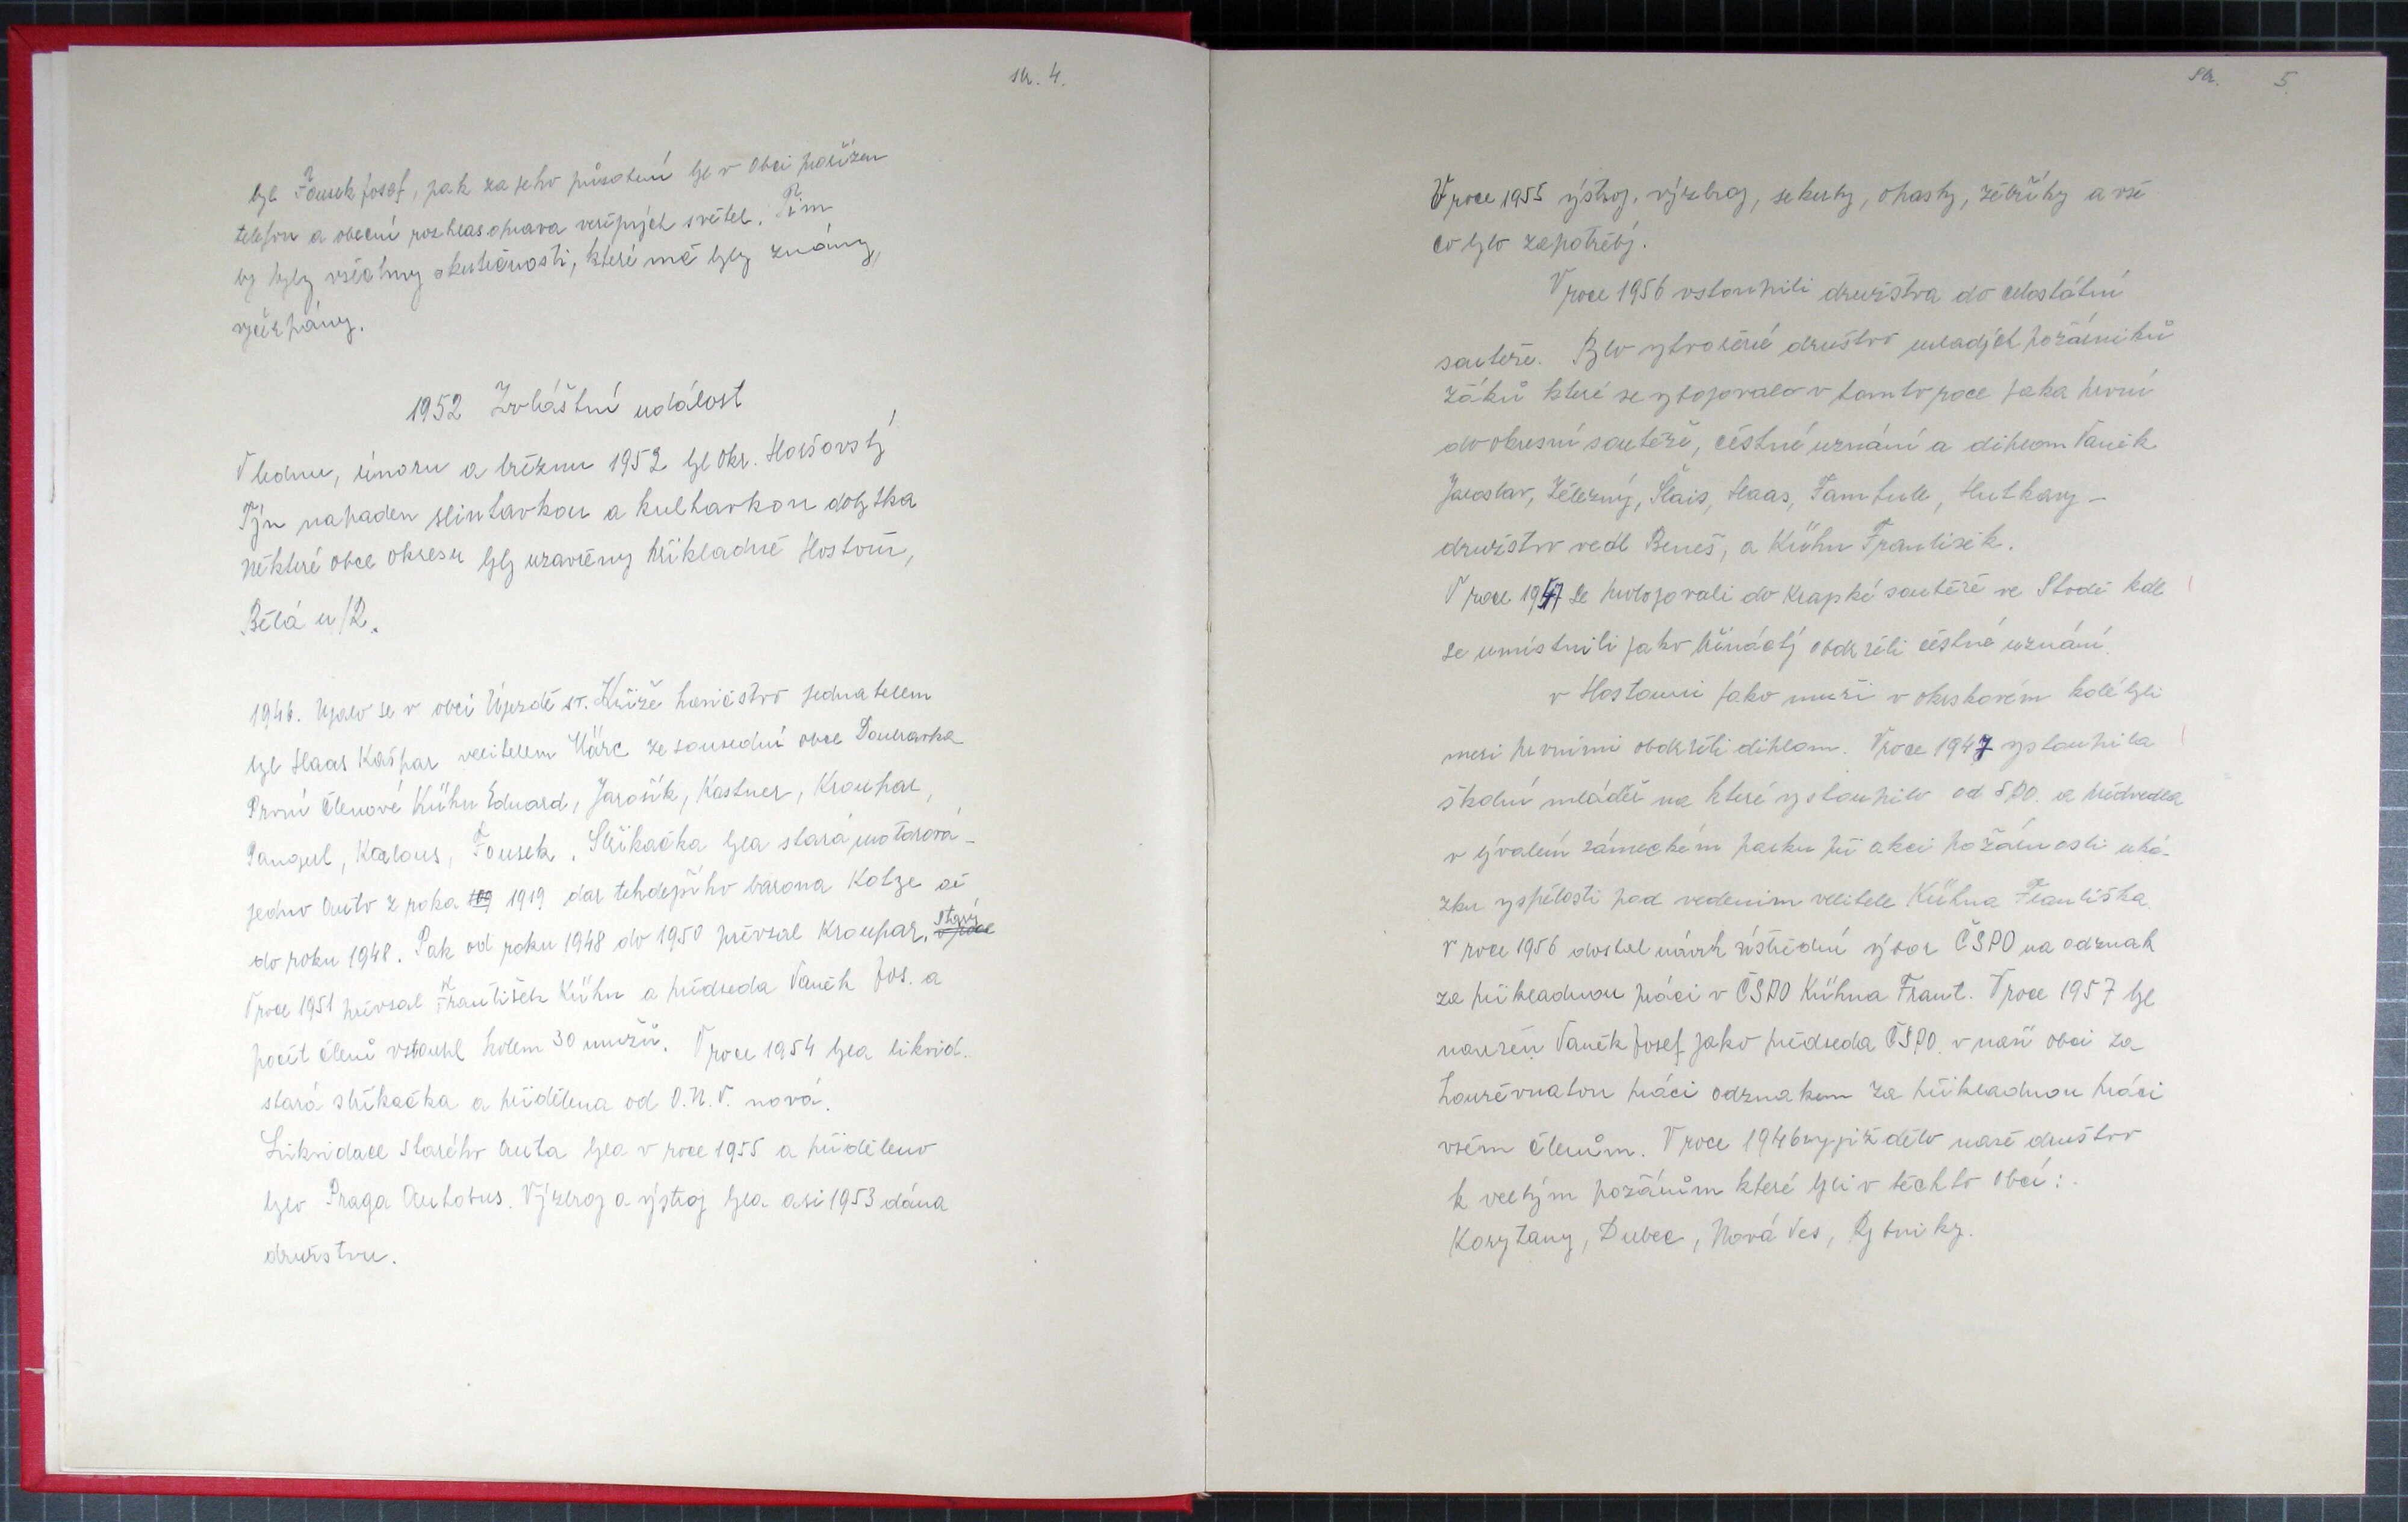 str. 4.
byl Fousek Josef, pak za jeho působení byl v obci pořízen
telefon a obecní rozhlas oprava veřejných světel. Tím
by byly všechny skutečnosti, které mě byly známy,
vyčerpány.
1952 Zvláštní událost
V lednu, únoru a březnu 1952 byl okr. Horšovský
Týn napaden slintavkou a kulhavkou dobytka
některé obce okresu byly uzavřeny příkladně Hostouň,
Bělá n/R.
1946. Ujalo se v obci Újezdě sv. Kříže hasičstvo jednatelem
byl Haas Kašpar velitelem März ze sousední obce Doubravka
První členové Kühn Eduard, Jarošík, Kastner, Kroupar,
Pangerl, Kalous, Fousek. Stříkačka byla stará motorová -
jedno auto z roka 1919 dar tehdejšího barona Kotze až
do roku 1948. Pak od roku 1948 do 1950 převzal Kroupar. starý v roce
V roce 1951 převzal František Kühn a předseda Vaněk Jos. a
počet členů vstoupl kolem 30 mužů. V roce 1954 byla likvid.
stará stříkačka a přidělena od O.N.V. nová.
Likvidace starého auta byla v roce 1955 a přiděleno
bylo Praga Autobus. Výzbroj a výstroj byla asi 1953 dána
družstvu.
Str. 5.
V roce 1955 výstroj, výzbroj, sekery, opasky, žebříky a vše
co bylo zapotřebí.
V roce 1956 vstoupili družstva do celostátní
soutěže. Bylo vytvořené družstvo mladých požárníků
žáků které se vybojovalo v tomto roce jaka první
do okresní soutěže, čéstné uznání a diplom Vaněk
Jaroslav, Železný, Šlais, Haas, Famfule, Hutkany -
družstvo vedl Beneš, a Kühn František.
V roce 1947 se probojovali do krajské soutěže ve Stodě kde
se umístnili jako třináctý obdrželi čéstné uznání.
v Hostouni jako muži v okrskovém kole byli
mezi prvními obdrželi diplom. V roce 1947 vystoupila
školní mládež na které vystoupilo od SPO. a předvedla
v bývalém zámeckém parku při akci požárnosti uká-
zku vyspělosti pod vedením velitele Kühna Františka.
V roce 1956 dostal návrh ústřední výbor ČSPO na odznak
za příkladnou práci v ČSPO Kühna Frant. V roce 1957 byl
navržen Vaněk Josef jako předseda ČSPO. v naší obci za
houževnatou práci odznakem za příkladnou práci
všem členům. V roce 1946 vyjíždělo naše družstvo
k velkým požárům které byli v těchto obcí:
Korytany, Dubec, Nová Ves, Rybníky.